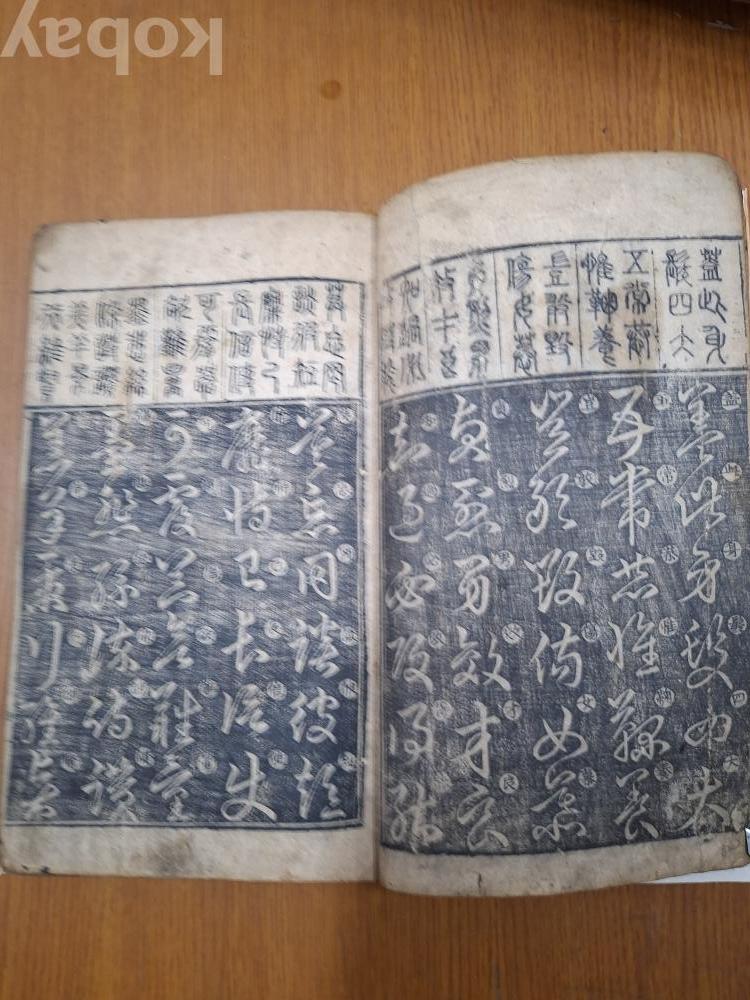 kobay
蓋此身
髮四大
五常恭
惟鞠養
豈敢毀
傷女慕
貞烈男
效才良
知過必
改得能
蓋此身髮四大
五常恭惟鞠養
豈敢毀傷女慕
貞烈男效才良
知過必改得能
莫忘罔
談彼短
靡恃己
長信使
可覆器
欲難量
墨悲絲
染詩讚
羔羊景
行維賢
莫忘罔談彼短
靡恃己長信使
可覆器欲難量
墨悲絲染詩讚
羔羊景行維賢